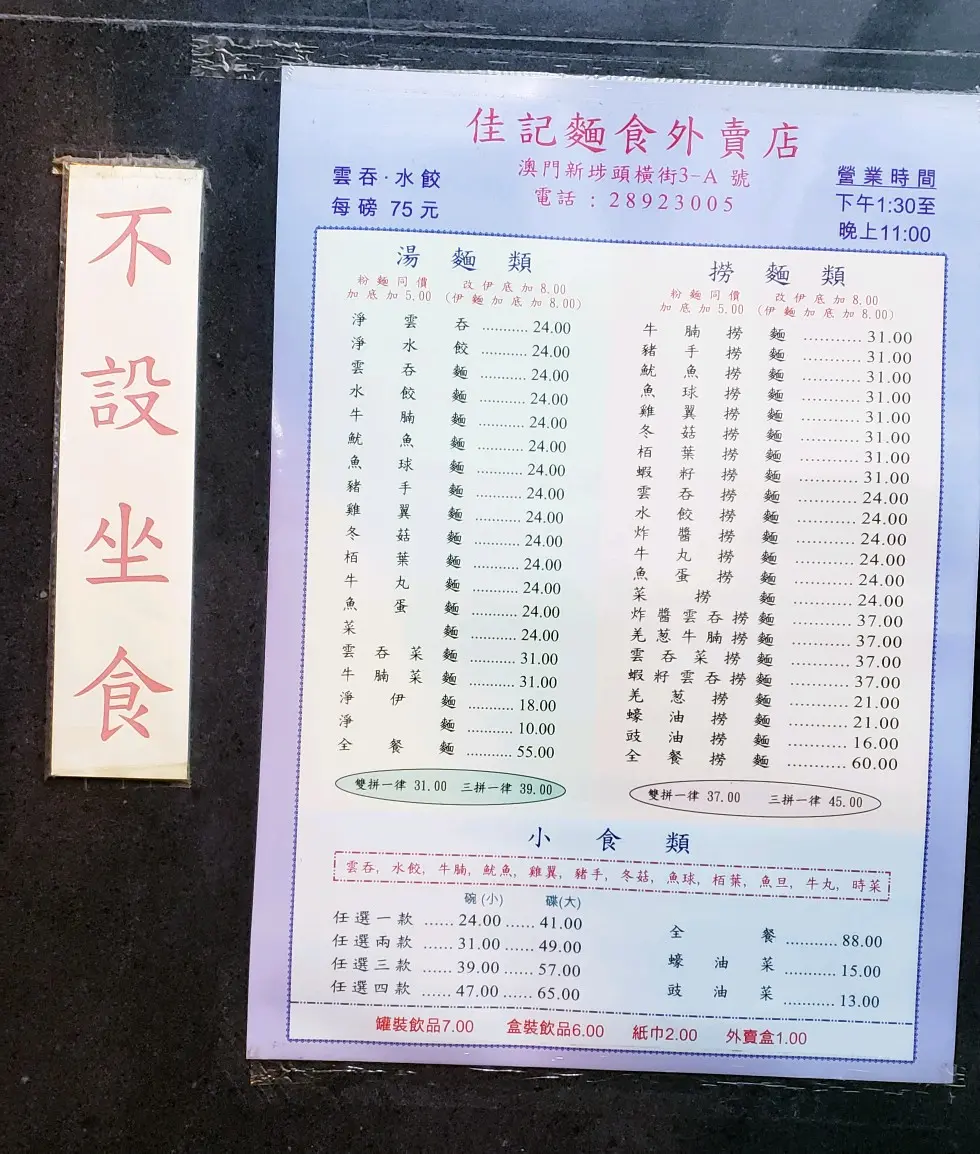 不設坐食
佳記麵食外賣店
澳門新埗頭橫街3-A 號
電話 : 28923005
雲吞·水餃
每磅 75 元
營業時間
下午1:30至
晚上11:00
湯麵類
粉麵同價 改伊底加 8.00
加底加 5.00 (伊麵加底加 8.00)
淨雲吞 ........... 24.00
淨水餃 ........... 24.00
雲吞麵 ........... 24.00
水餃麵 ........... 24.00
牛腩麵 ........... 24.00
魷魚麵 ........... 24.00
魚球麵 ........... 24.00
豬手麵 ........... 24.00
雞翼麵 ........... 24.00
冬菇麵 ........... 24.00
栢葉麵 ........... 24.00
牛丸麵 ........... 24.00
魚蛋麵 ........... 24.00
菜麵 ........... 24.00
雲吞菜麵 ........... 31.00
牛腩菜麵 ........... 31.00
淨伊麵 ........... 18.00
淨麵 ........... 10.00
全餐麵 ........... 55.00
雙拼一律 31.00 三拼一律 39.00
撈麵類
粉麵同價 改伊底加 8.00
加底加 5.00 (伊麵加底加 8.00)
牛腩撈麵 ........... 31.00
豬手撈麵 ........... 31.00
魷魚撈麵 ........... 31.00
魚球撈麵 ........... 31.00
雞翼撈麵 ........... 31.00
冬菇撈麵 ........... 31.00
栢葉撈麵 ........... 31.00
蝦籽撈麵 ........... 31.00
雲吞撈麵 ........... 24.00
水餃撈麵 ........... 24.00
炸醬撈麵 ........... 24.00
牛丸撈麵 ........... 24.00
魚蛋撈麵 ........... 24.00
菜撈麵 ........... 24.00
炸醬雲吞撈麵 ........... 37.00
羗葱牛腩撈麵 ........... 37.00
雲吞菜撈麵 ........... 37.00
蝦籽雲吞撈麵 ........... 37.00
羗葱撈麵 ........... 21.00
蠔油撈麵 ........... 21.00
豉油撈麵 ........... 16.00
全餐撈麵 ........... 60.00
雙拼一律 37.00 三拼一律 45.00
小食類
雲吞, 水餃, 牛腩, 魷魚, 雞翼, 豬手, 冬菇, 魚球, 栢葉, 魚旦, 牛丸, 時菜
碗(小) 碟(大)
任選一款 ...... 24.00 ...... 41.00
任選兩款 ...... 31.00 ...... 49.00
任選三款 ...... 39.00 ...... 57.00
任選四款 ...... 47.00 ...... 65.00
全餐 ........... 88.00
蠔油菜 ........... 15.00
豉油菜 ........... 13.00
罐裝飲品7.00 盒裝飲品6.00 紙巾2.00 外賣盒1.00